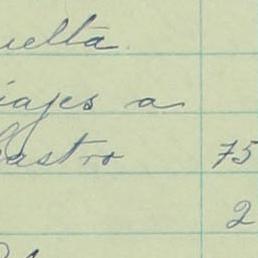 uelta
iajes a
astro 75
2